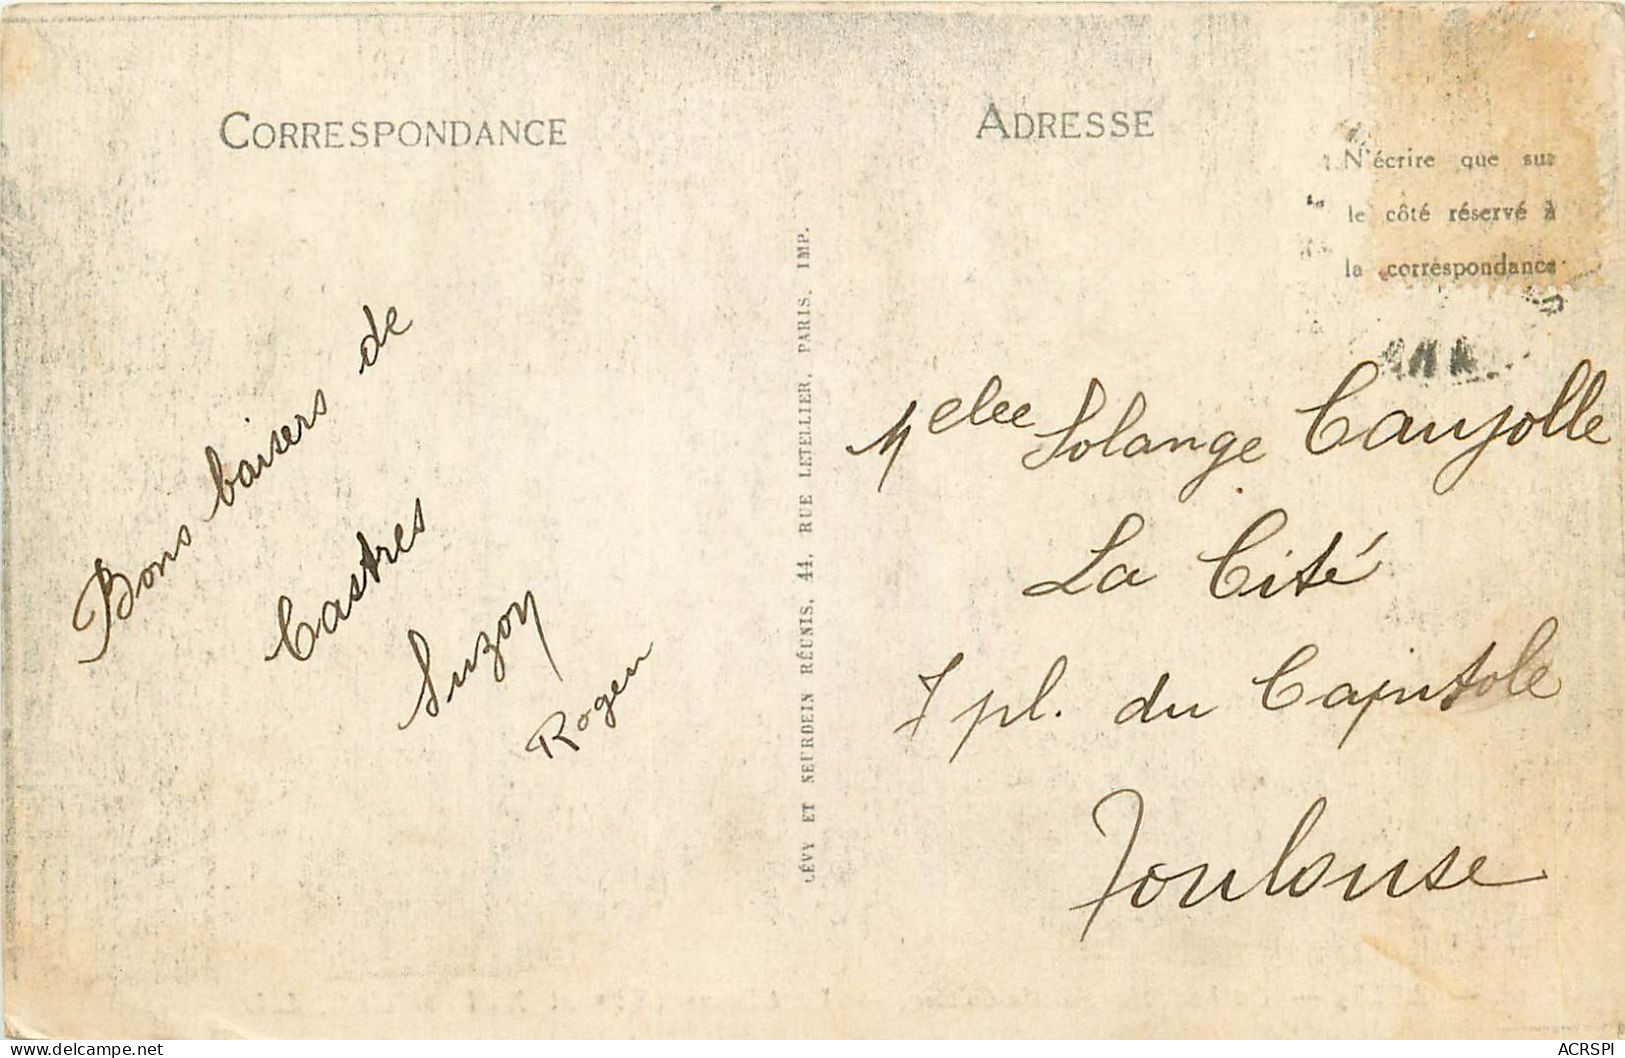 CORRESPONDANCE
Bons baisers de
Castres
Suzon
Roger
LÉVY ET NEURDEIN RÉUNIS, 44, RUE LETELLIER, PARIS. IMP.
ADRESSE
N'écrire que sur
le côté réservé à
la correspondance
Melle Solange Caujolle
La Cité
7 pl. du Capitole
Toulouse
ACRSPI